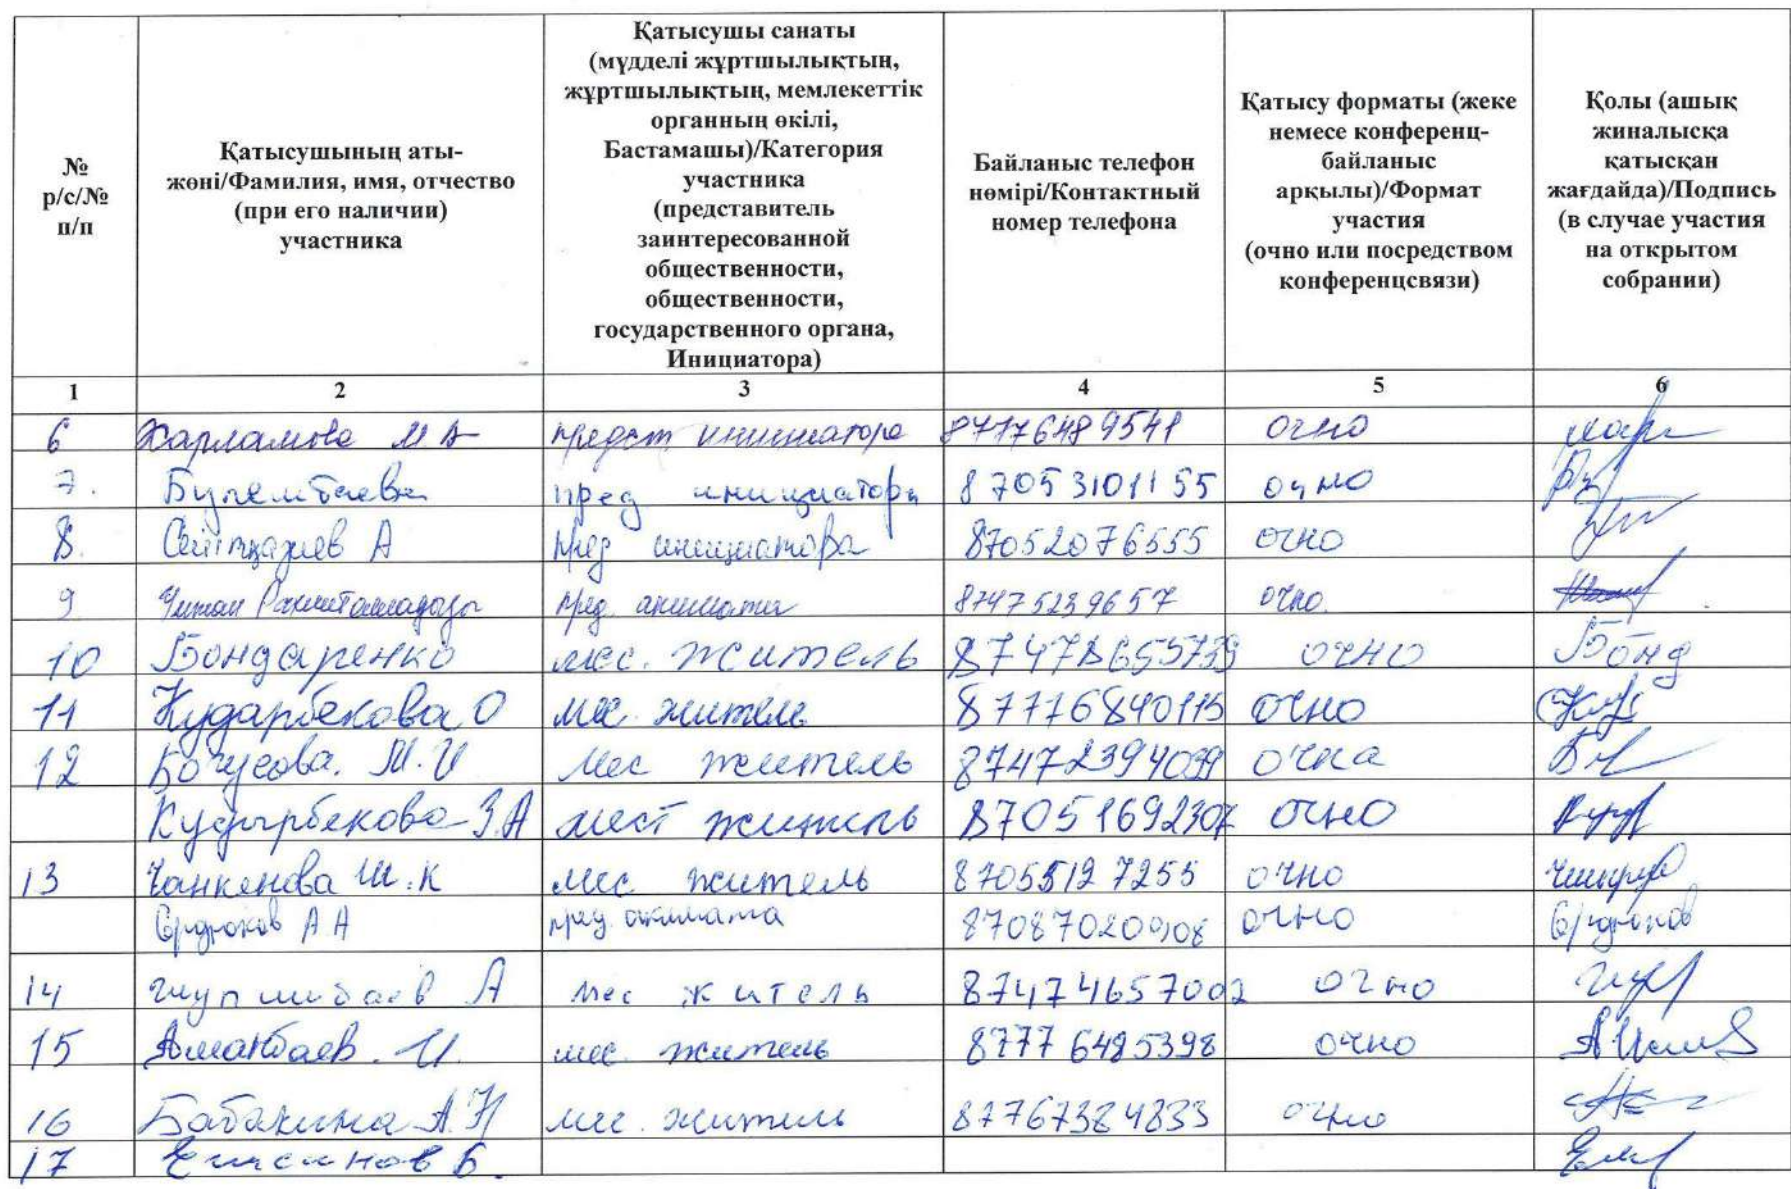 №
р/с/№
п/п
Қатысушының аты-
жөні/Фамилия, имя, отчество
(при его наличии)
участника
Қатысушы санаты
(мүдделі жұртшылықтың,
жұртшылықтың, мемлекеттік
органның өкілі,
Бастамашы)/Категория
участника
(представитель
заинтересованной
общественности,
общественности,
государственного органа,
Инициатора)
Байланыс телефон
нөмірі/Контактный
номер телефона
Қатысу форматы (жеке
немесе конференц-
байланыс
арқылы)/Формат
участия
(очно или посредством
конференцсвязи)
Қолы (ашық
жиналысқа
қатысқан
жағдайда)/Подпись
(в случае участия
на открытом
собрании)
1 2 3 4 5 6
6 Харламова М А предст инициатора 87776489541 очно
7. пред инициатора 87053101155 очно
8. А пред инициатора 87052076555 очно
9 пред. 87475239657 очно.
10 Бондаренко мес. житель 87478655739 очно Бонд
11 Кударбекова О мес. житель 87776840115 очно
12 М.И мес житель 87472394099 очна
Кудырбекова З.А мест житель 87051692307 очно
13 Чанкенова Ш.К мес житель 87055127255 очно
Сердюков А.А пред. акимата 87087020908 очно Сердюков
14 А мес житель 87474657002 очно
15 Аманбаев. И. мес. житель 87776485398 очно
16 Бабакина А.Н мес. житель 87767384833 очно
17 Б.